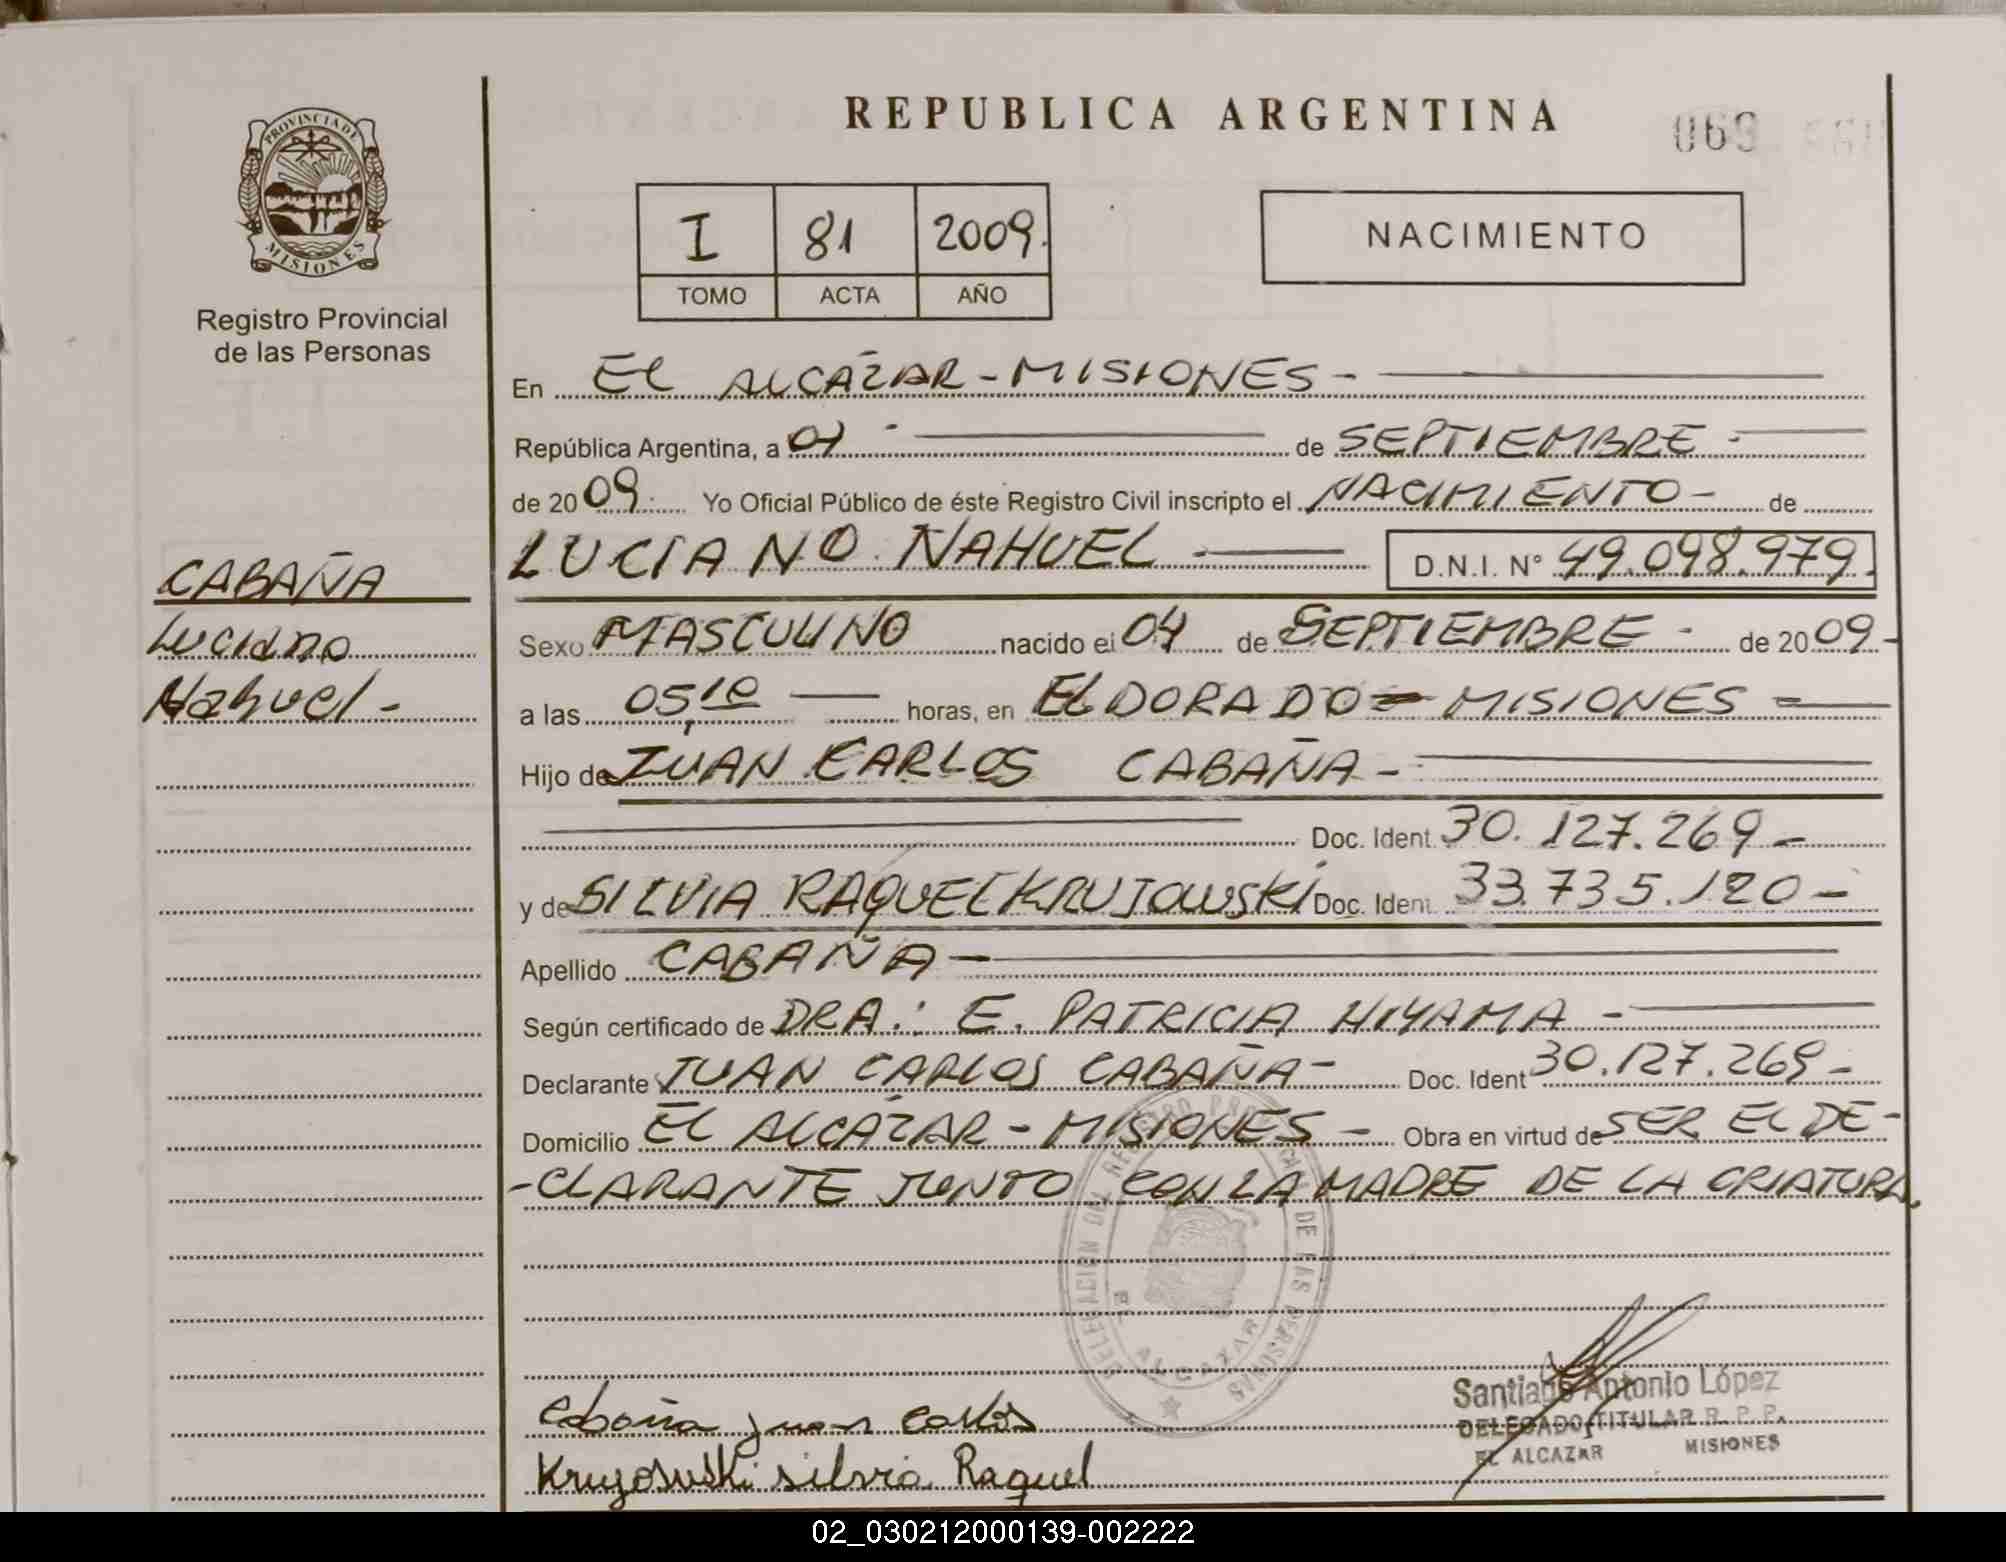 REPUBLICA ARGENTINA
069
PROVINCIA DE
MISIONES
Registro Provincial
de las Personas
I 81 2009.
TOMO ACTA AÑO
NACIMIENTO
En EL ALCÁZAR - MISIONES -
República Argentina, a 07 - de SEPTIEMBRE -
de 2009. Yo Oficial Público de éste Registro Civil inscripto el NACIMIENTO - de
CABAÑA
Luciano
Nahuel -
LUCIANO NAHUEL - D.N.I. N° 49.098.979.
Sexo MASCULINO nacido el 04 de SEPTIEMBRE - de 2009 -
a las 05,10 — horas, en ELDORADO - MISIONES -
Hijo de JUAN CARLOS CABAÑA -
Doc. Ident. 30.127.269 -
y de SILVIA RAQUEL KRUJOWSKI Doc. Ident. 33.735.120 -
Apellido CABAÑA -
Según certificado de DRA.: E. PATRICIA HIYAMA -
Declarante JUAN CARLOS CABAÑA - Doc. Ident 30.127.269 -
Domicilio EL ALCÁZAR - MISIONES - Obra en virtud de SER EL DE-
-CLARANTE JUNTO CON LA MADRE DE LA CRIATURA.
DELEGACION DEL REGISTRO PROVINCIAL DE LAS PERSONAS
EL ALCAZAR
Cabaña Juan Carlos
Krujowski Silvia Raquel
Santiago Antonio López
DELEGADO TITULAR R. P. P.
EL ALCAZAR MISIONES
02_030212000139-002222